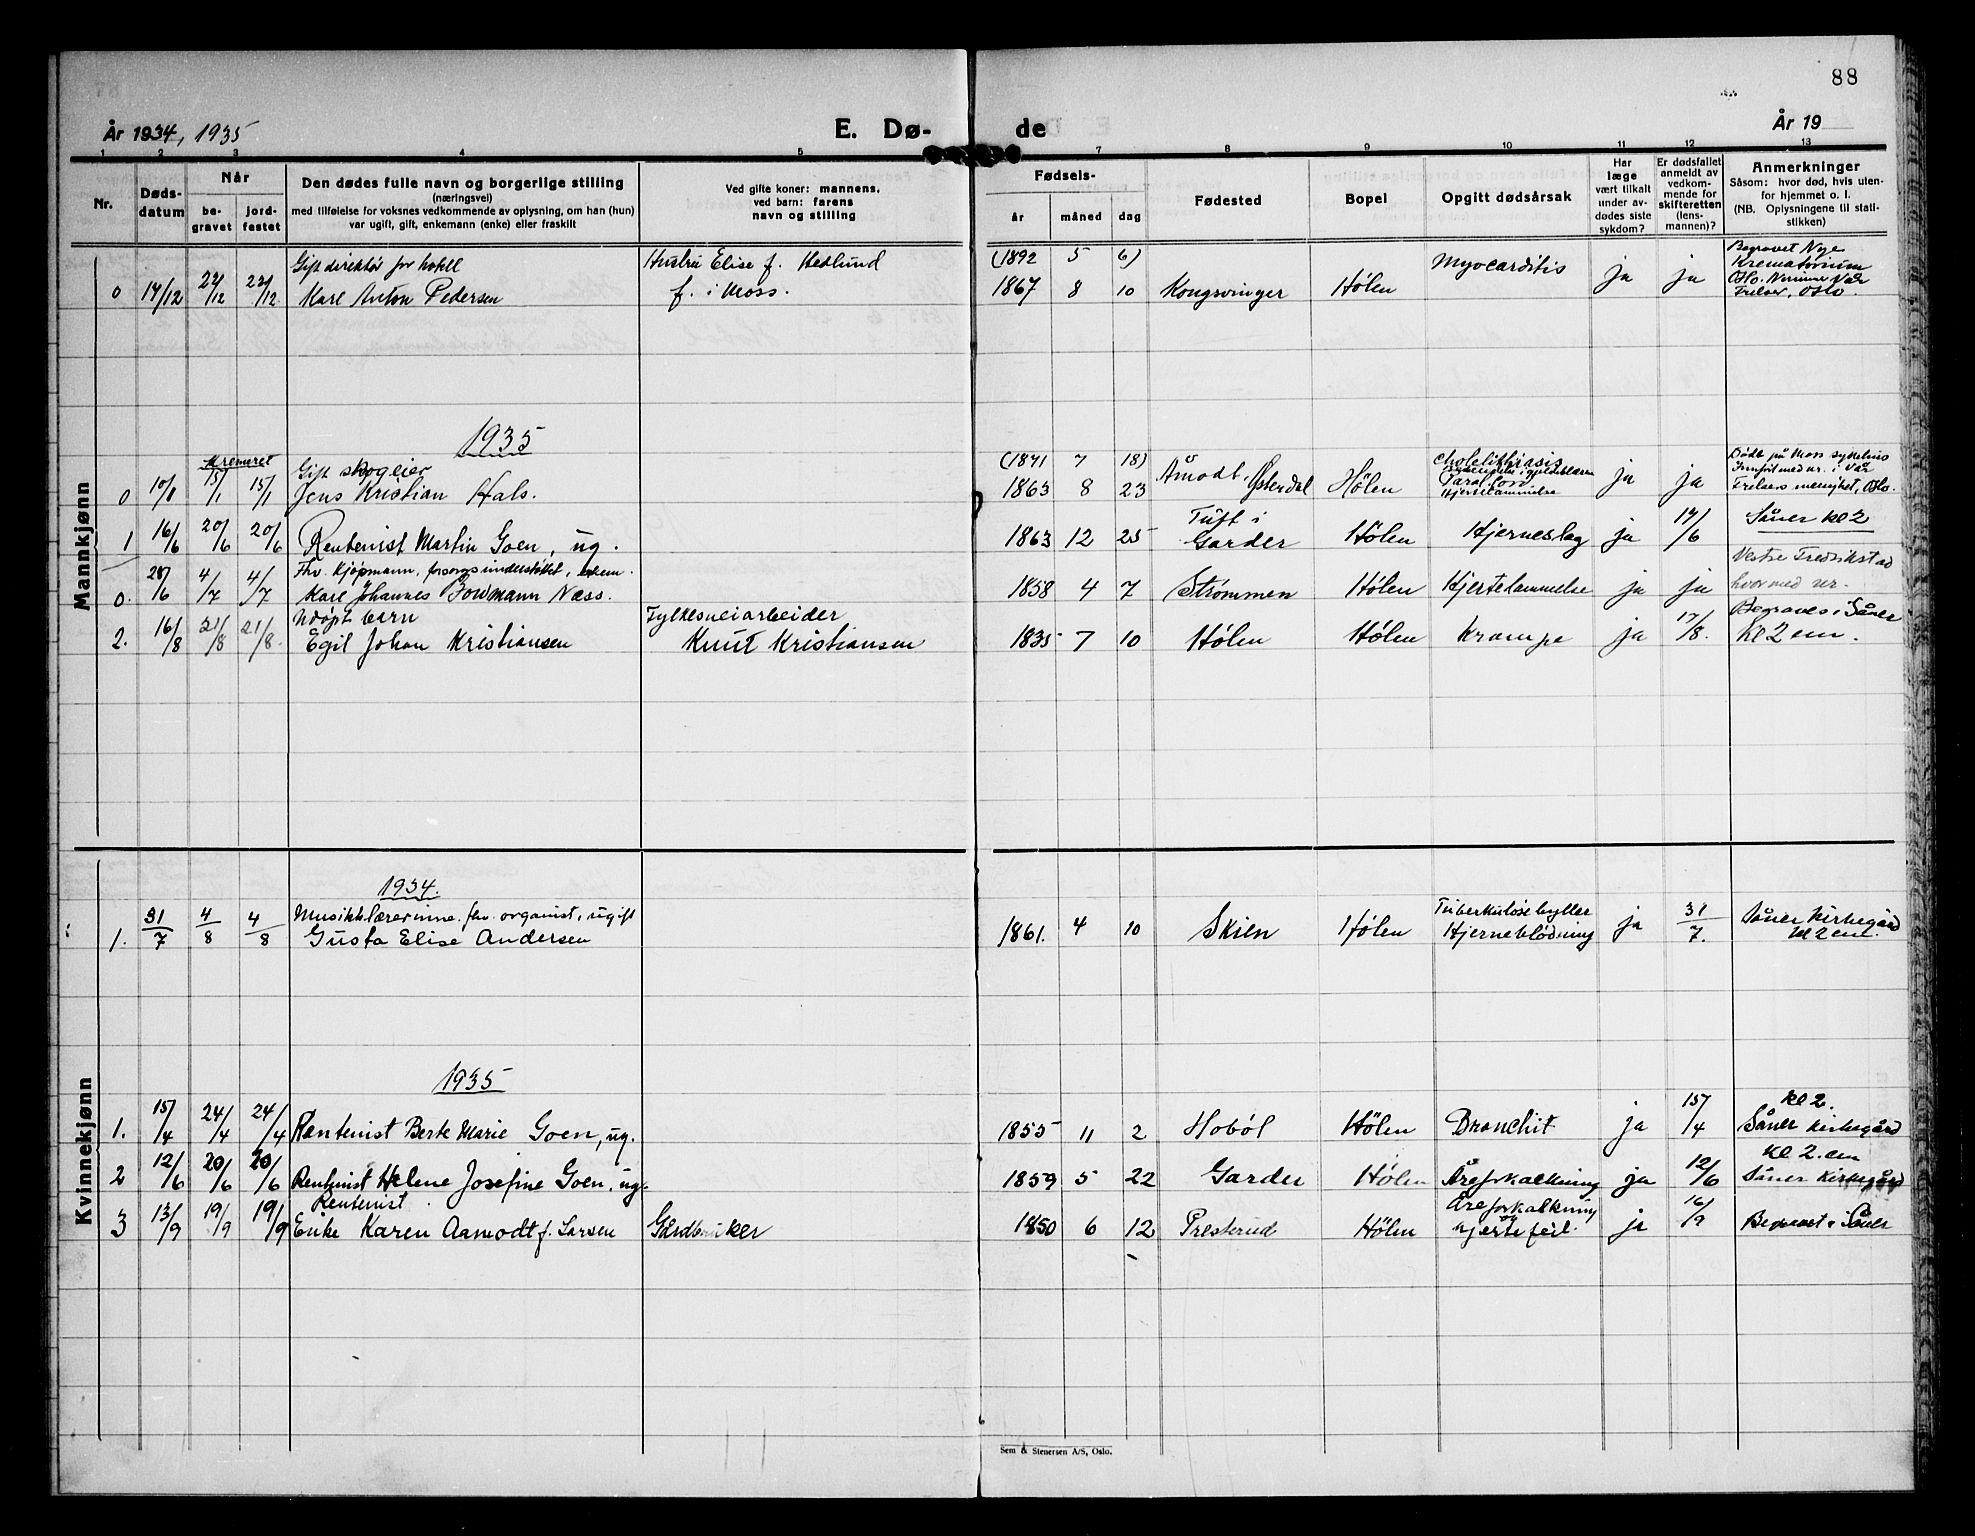 88
År 1934, 1935
E. Dø-
de
År 19
1 2 3 4 5 7 8 9 10 11 12 13
Nr.
Døds-
datum
Når
be-
gravet
jord-
festet
Den dødes fulle navn og borgerlige stilling
(næringsvei)
med tilføielse for voksnes vedkommende av oplysning, om han (hun)
var ugift, gift, enkemann (enke) eller fraskilt
Ved gifte koner: mannens,
ved barn: farens
navn og stilling
Fødsels-
år måned dag
Fødested
Bopel
Opgitt dødsårsak
Har
læge
vært tilkalt
under av-
dødes siste
sykdom?
Er dødsfallet
anmeldt av
vedkom-
mende for
skifteretten
(lens-
mannen)?
Anmerkninger
Såsom: hvor død, hvis uten-
for hjemmet o. l.
(NB. Oplysningene til stati-
stikken)
Mannkjønn
Gift direktør for hotell Hustru Elise f. Hedlund (1892 5 6)
0 17/12 22/12 22/12 Karl Anton Pedersen f. i Moss. 1867 8 10 Kongsvinger Hølen Myocarditis ja ja
Begravet Nye
Krematorium
Oslo. Vår
Frelser, Oslo.
1935
Kremeret
Gift skogeier (1871 7 18)
0 10/1 15/1 15/1 Jens Kristian Hals. 1863 8 23 Åmodt, Østerdal Hølen
Cholelithiasis
Hjertelammelse
ja ja
Dødt på Moss sykehus
Innført med nr. i Vår
Frelsers menighet, Oslo.
1 16/6 20/6 20/6 Rentenist Martin Goen, ug. 1863 12 25 Tuft i
Garder Hølen Hjerneslag ja 17/6 Såner kl 2
Fhv. Kjøpmann, forsorgsunderstøttet, enkem.
0. 28/6 4/7 4/7 Karl Johannes Bowmann Næss. 1858 4 7 Strømmen Hølen Hjertelammelse ja ja
Vestre Fredrikstad
hvor med nr.
Udøpt barn Fylkesveiarbeider
2. 16/8 21/8 21/8. Egil Johan Kristiansen Knut Kristiansen 1835 7 10 Hølen Hølen Krampe ja 17/8.
Begraves i Såner
Kl 2 em.
Kvinnekjønn
1934.
Musikklærerinne. fhv. organist, ugift
1. 31/7 4/8 4/8 Gusta Elise Andersen 1861. 4 10 Skien Hølen
Hjerneblødning
ja 31/7.
Såner Kirkegård
kl 2 em.
1935
1. 15/4 24/4 24/4 Rentenist Berte Marie Goen, ug. 1855 11 2 Hobøl Hølen Bronchit ja 15/4
kl 2.
Såner Kirkegård
2 12/6 20/6 20/6 Rentenist Helene Josefine Goen, ug. 1859 5 22 Garder Hølen Åreforkalkning ja 12/6
Kl 2. em
Såner Kirkegård
Rentenist.
3 13/9 19/9 19/9 Enke Karen Aamodt f. Larsen Gårdbruker 1850 6 12 Presterud Hølen
Åreforkalkning
og
hjertefeil.
ja 16/9 Begravet i Såner
Sem & Stenersen A/S, Oslo.